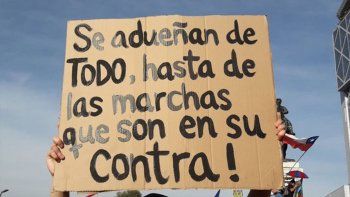 Se adueñan de
ToDO, hasta de
las marchas
que son en su
contra!